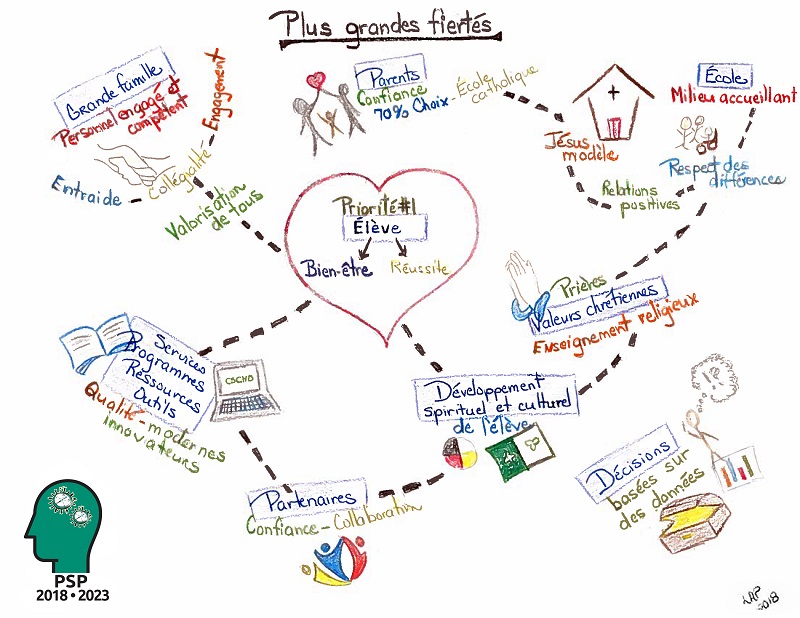 Plus grandes fiertés
Grande famille
Personnel engagé et
compétent
Engagement
Entraide - Collégialité -
Valorisation
de tous
Parents
Confiance
70% Choix - École
catholique
Jésus
modèle
École
Milieu accueillant
Respect des
différences
Relations
positives
Priorité #1
Élève
Bien-être
Réussite
Prières
Valeurs chrétiennes
Enseignement religieux
Services
Programmes
Ressources
Outils
CSCNO
Qualité - modernes
Innovateurs
Développement
spirituel et culturel
de l'élève
Partenaires
Confiance - Collaboration
!?
Décisions
basées sur
des données
PSP
2018 • 2023
2018